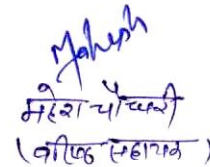 Mahesh
महेश चौधरी
(वरिष्ठ सहायक)